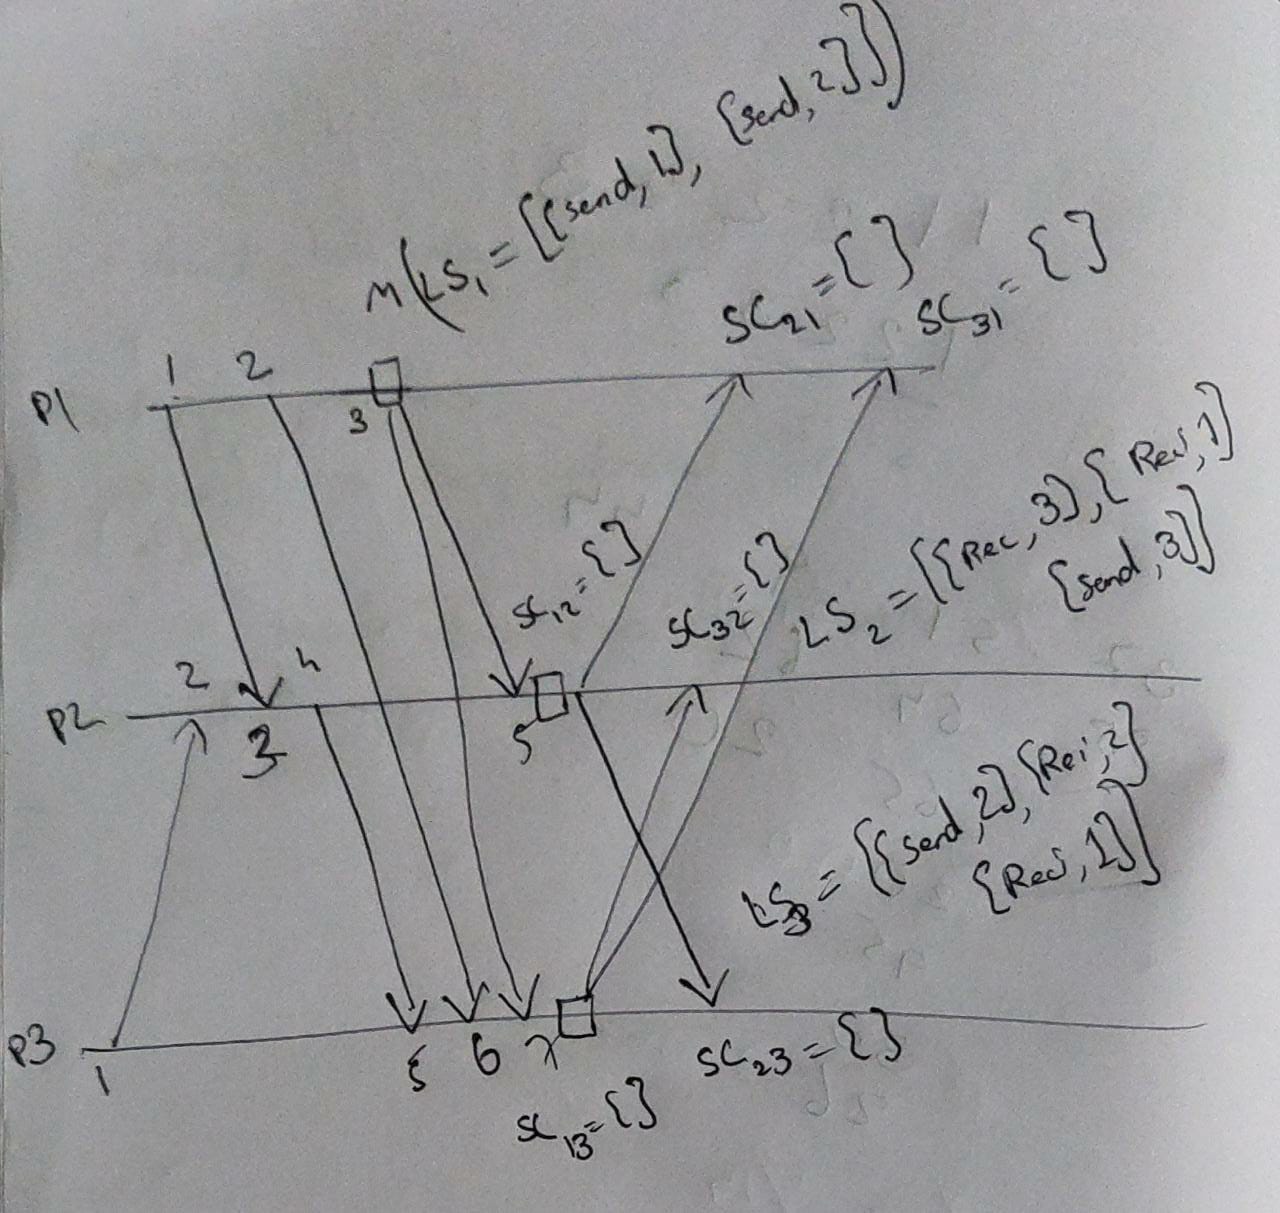 M(LS1 = [{send, 1}, {send, 2}])
SC21 = { }
SC31 = { }
1 2
P1
3
SC12 = { }
SC32 = { }
LS2 = [{Rec, 3}, {Rec, 1}
{send, 3}]
2 4
P2
3
5
LS3 = [{send, 2}, {Rec, 2}
{Rec, 1}]
P3
1
5 6 7
SC23 = { }
SC13 = { }